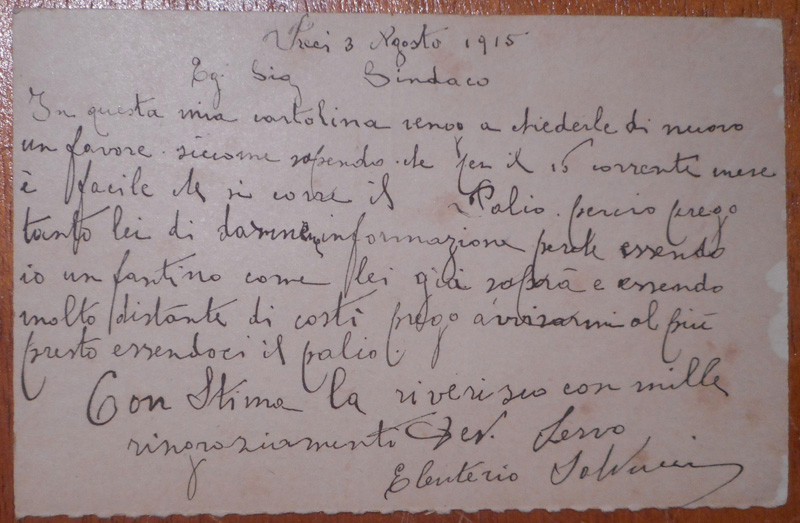 3 Agosto 1915
Eg. Sig Sindaco
In questa mia cartolina vengo a chiederle di nuovo
un favore. siccome sapendo che per il 16 corrente mese
è facile che si corre il Palio. perciò prego
tanto lei di darmene informazione perche essendo
io un fantino come lei già saprà e essendo
molto distante di costì prego avvisarmi al più
presto essendoci il palio
Con Stima la riverisco con mille
ringraziamenti Dev. Servo
Eleuterio